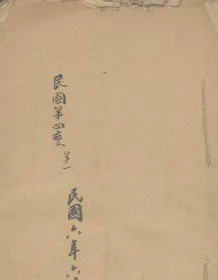 民國第四變 第一
民國六年六